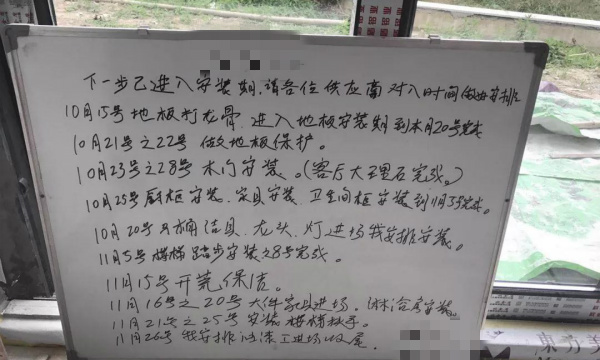 下一步已进入安装期,请各位供应商对入时间做好安排
10月15号地板打龙骨,进入地板安装期到本月20号完成
10月21号之22号做地板保护。
10月23号之28号木门安装。(客厅大理石完成。)
10月25号厨柜安装、家具安装、卫生间柜安装到11月3号完成。
10月20号 洁具、龙头、灯进场我安排安装。
11月5号楼梯踏步安装之8号完成。
11月15号开荒保洁。
11月16号之20号大件家具进场。淋浴房安装。
11月21号之25号安装楼梯扶手。
11月26号我安排清洁工进场收尾
东方美